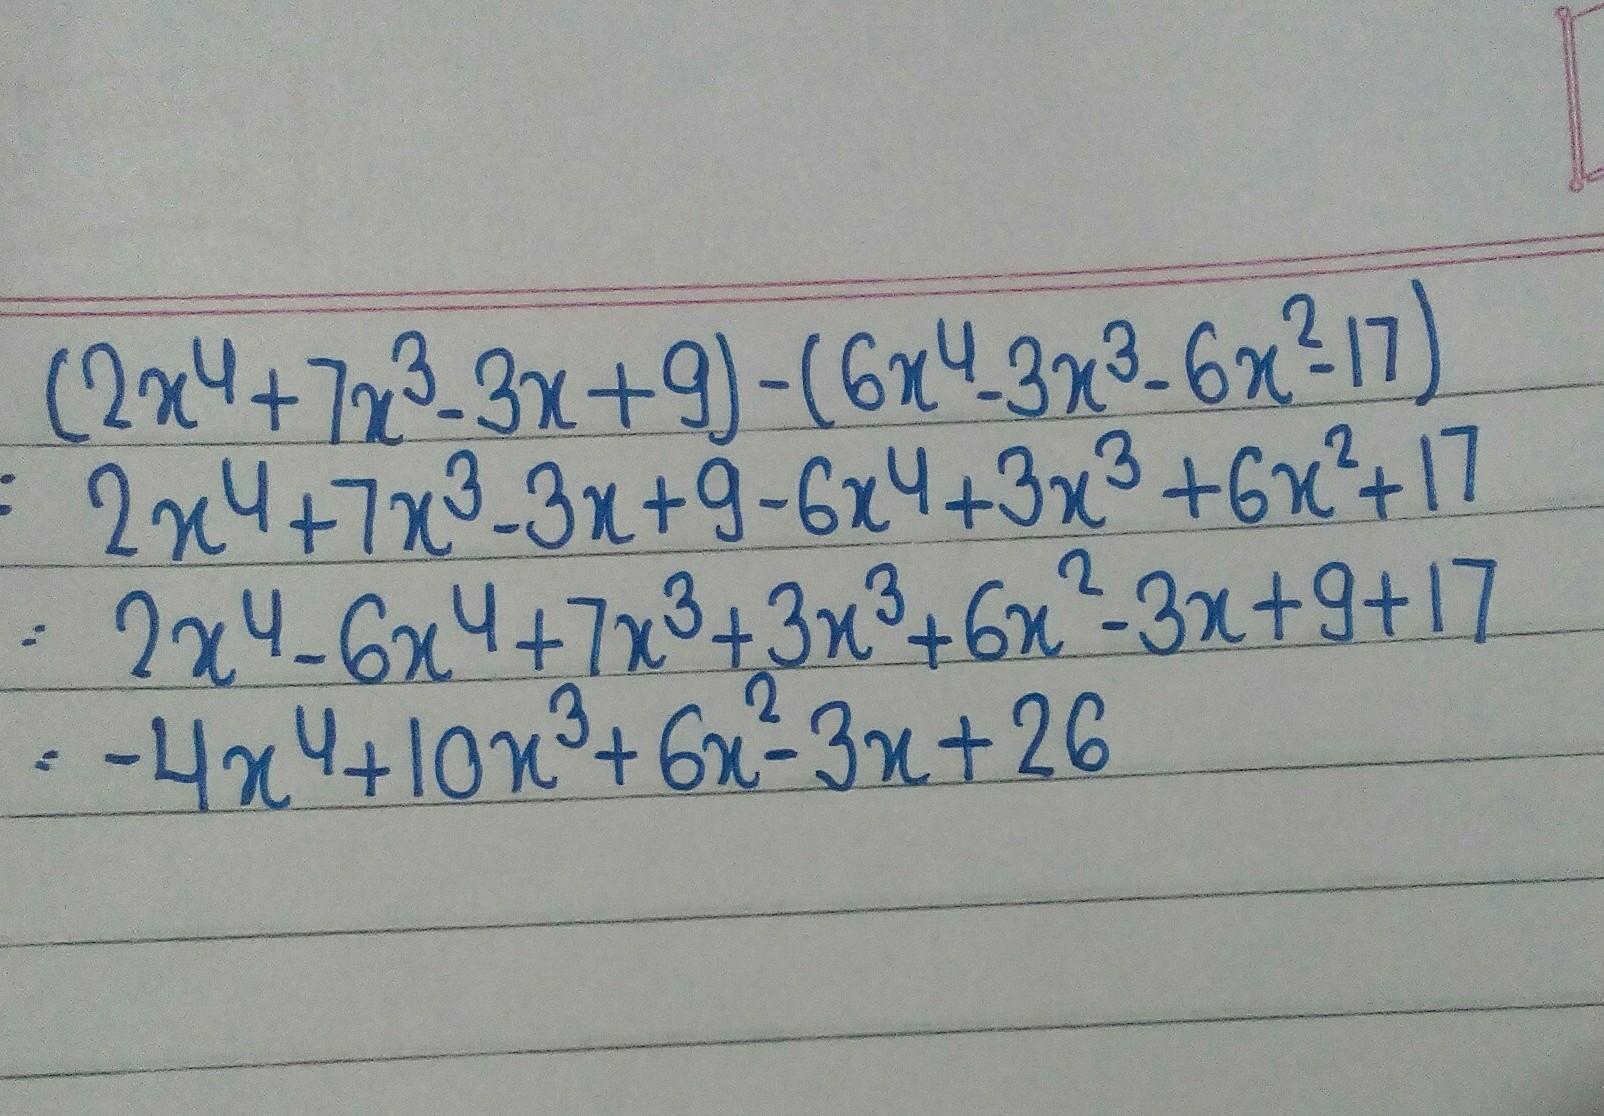 (2x⁴+7x³-3x+9)-(6x⁴-3x³-6x²-17)
= 2x⁴+7x³-3x+9-6x⁴+3x³+6x²+17
= 2x⁴-6x⁴+7x³+3x³+6x²-3x+9+17
= -4x⁴+10x³+6x²-3x+26